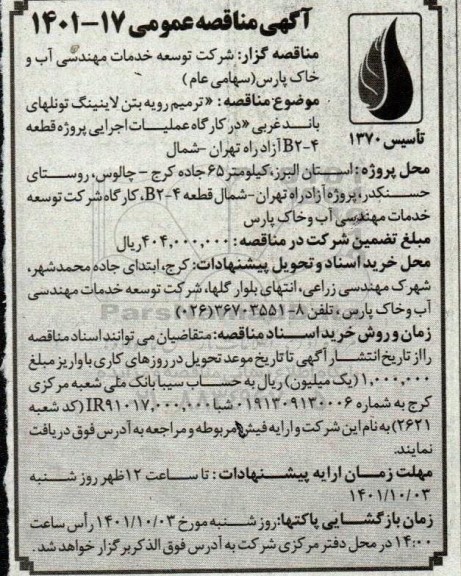 آگهی مناقصه عمومی ۱۷-۱۴۰۱
مناقصه گزار: شرکت توسعه خدمات مهندسی آب و
خاک پارس(سهامی عام)
موضوع مناقصه: «ترمیم رویه بتن لاینینگ تونلهای
باند غربی «در کارگاه عملیات اجرایی پروژه قطعه
B۲-۴ آزاد راه تهران -شمال
تأسیس ۱۳۷۰
محل پروژه: استان البرز، کیلومتر ۶۵ جاده کرج - چالوس، روستای
حسنکدر، پروژه آزاد راه تهران-شمال قطعه B۲-۴، کارگاه شرکت توسعه
خدمات مهندسی آب و خاک پارس
مبلغ تضمین شرکت در مناقصه: ۴۰۴,۰۰۰,۰۰۰ ریال
محل خرید اسناد و تحویل پیشنهادات: کرج، ابتدای جاده محمدشهر،
شهرک مهندسی زراعی، انتهای بلوار گلها، شرکت توسعه خدمات مهندسی
آب وخاک پارس، تلفن ۸-۳۶۷۰۳۵۵۱(۰۲۶)
زمان و روش خرید اسناد مناقصه: متقاضیان می توانند اسناد مناقصه
را از تاریخ انتشار آگهی تا تاریخ موعد تحویل در روزهای کاری با واریز مبلغ
۱,۰۰۰,۰۰۰ (یک میلیون) ریال به حساب سیبا بانک ملی شعبه مرکزی
کرج به شماره ۰۱۹۱۳۰۹۱۳۰۰۰۶ شبا IR۹۱۰۱۷,۰۰۰,۰۰۰ (کد شعبه
۲۶۲۱) به نام این شرکت و ارایه فیش مربوطه و مراجعه به آدرس فوق دریافت
نمایند.
مهلت زمان ارایه پیشنهادات: تا ساعت ۱۲ ظهر روز شنبه
۱۴۰۱/۱۰/۰۳
زمان بازگشایی پاکتها: روز شنبه مورخ ۱۴۰۱/۱۰/۰۳ رأس ساعت
۱۴:۰۰ در محل دفتر مرکزی شرکت به آدرس فوق الذکر برگزار خواهد شد.